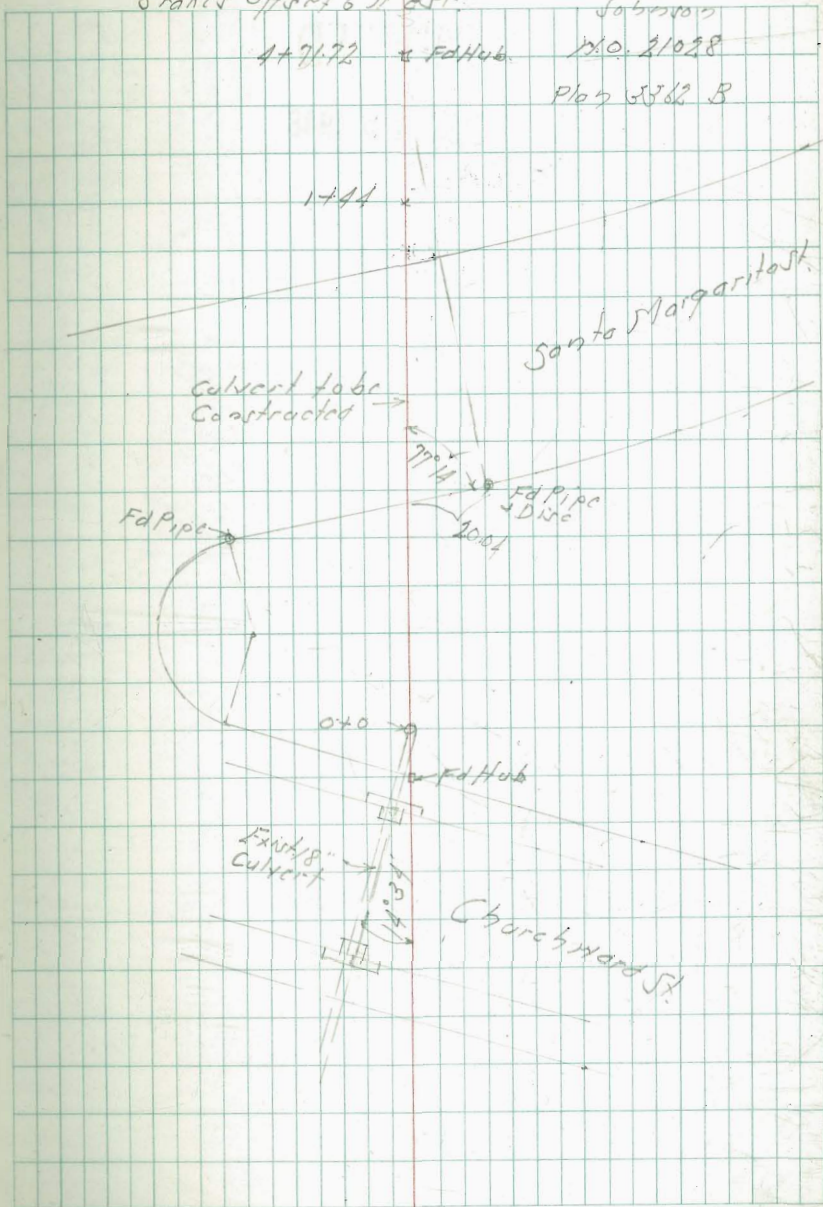 Stakes Offset 6'
Johnson
4+71.72 Fd Hub. W.O. 21028
Plan 3362 B
1+44
Santa Margarita St.
Culvert to be
Constructed
77°14'
Fd Pipe
+ Disc
20.04
Fd Pipe
0+0
Fd Hub
Exist 18"
Culvert
14°34'
Churchward St.